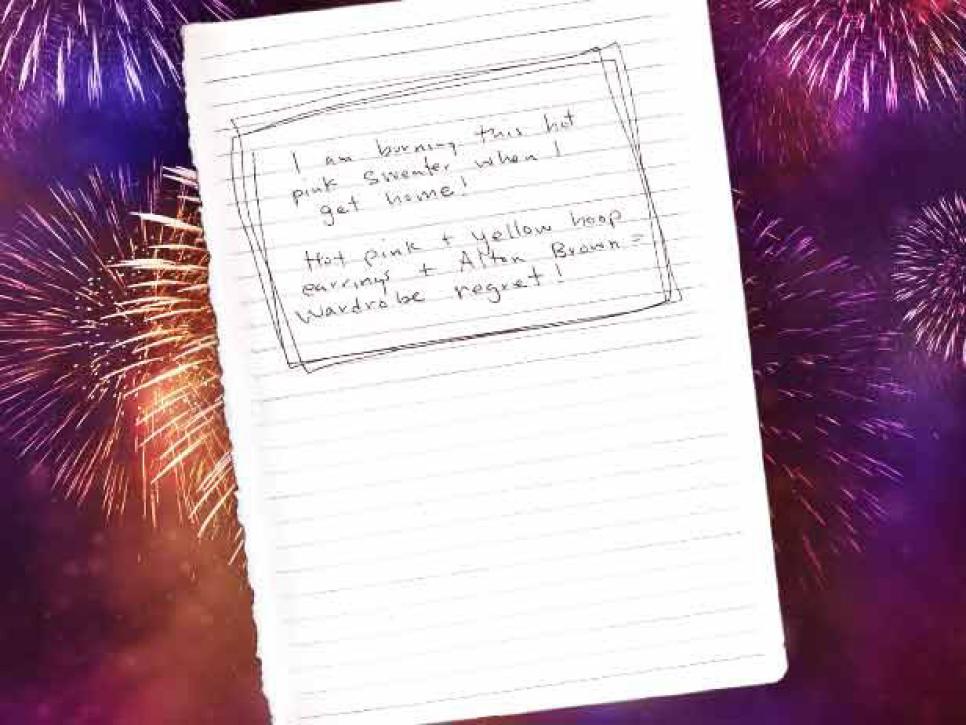 I am burning this hot
pink sweater when I
get home!
Hot pink + yellow hoop
earrings + Alton Brown =
wardrobe regret!